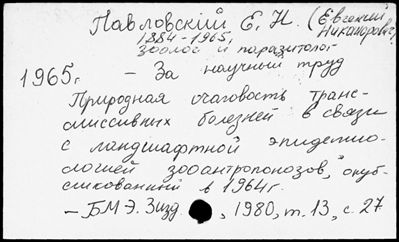 Павловский Е. Н. (Евгений Никанорович)
1884-1965,
зоолог и паразитолог
1965г. — За научный труд
Природная очаговость транс-
миссивных болезней в связи
с ландшафтной эпидемио-
логией зооантропонозов, "опуб-
ликованный в 1964г.
— БМЭ. 3изд., 1980, т. 13, с. 27